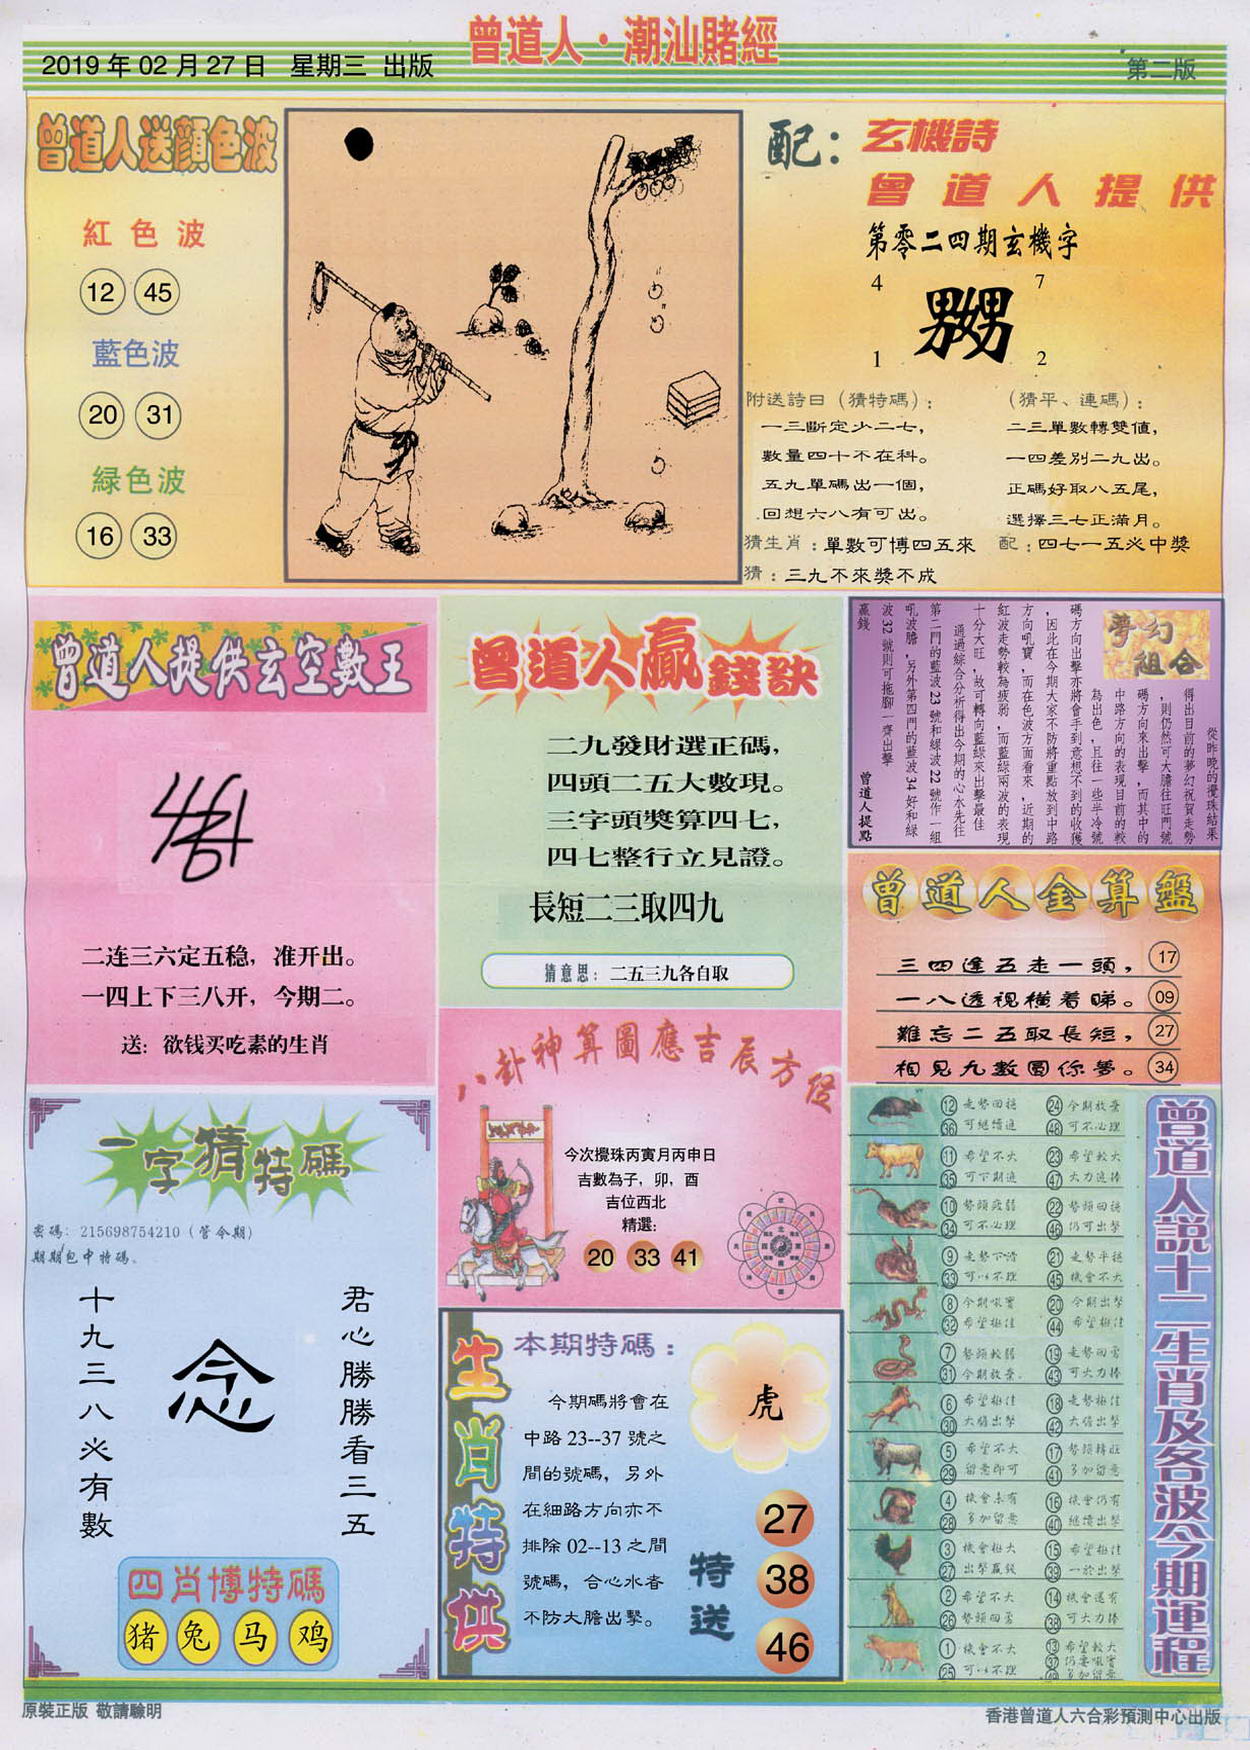 曾道人·潮汕賭經
2019 年 02 月 27 日 星期三 出版
第二版
曾道人送顏色波
紅色波
12 45
藍色波
20 31
綠色波
16 33
配：玄機詩
曾道人提供
第零二四期玄機字
4 7
嬲
1 2
附送詩曰（猜特碼）：
一三斷定少二七，
數量四十不在科。
五九單碼出一個，
回想六八有可出。
（猜平、連碼）：
二三單數轉雙值，
一四差別二九出。
正碼好取八五尾，
選擇三七正滿月。
猜生肖：單數可博四五來 配：四七一五必中獎
猜：三九不來獎不成
曾道人提供玄空數王
二连三六定五稳，准开出。
一四上下三八开，今期二。
送：欲钱买吃素的生肖
曾道人贏錢訣
二九發財選正碼，
四頭二五大數現。
三字頭獎算四七，
四七整行立見證。
長短二三取四九
猜意思：二五三九各自取
夢幻組合
從昨晚的攪珠結果
得出目前的夢幻祝賀走勢
，則仍然可大膽往旺門號
碼方向來出擊，而其中的
中路方向的表現目前的較
為出色，且往一些半冷號
碼方向出擊亦將會手到意想不到的收獲
，因此在今期大家不防將重點放到中路
方向吼寶，而在色波方面看來，近期的
紅波走勢較為疲弱，而藍綠兩波的表現
十分大旺，故可轉向藍綠來出擊最佳
通過綜合分析得出今期的心水先往
第二門的藍波 23 號和綠波 22 號作一組
吼波膽，另外第四門的藍波 34 好和綠
波 32 號則可拖腳一齊出擊
贏錢
曾道人提點
曾道人金算盤
三四逢五走一頭， 17
一八透視橫着睇。 09
難忘二五取長短， 27
相見九數圓你夢。 34
八卦神算圖應吉辰方位
今次攪珠丙寅月丙申日
吉數為子，卯，酉
吉位西北
精選：
20 33 41
一字猜特碼
密碼：215698754210（管今期）
期期包中特碼。
君心勝勝看三五
念
十九三八必有數
四肖博特碼
猪 兔 马 鸡
生肖特供
本期特碼：
虎
今期碼將會在
中路 23--37 號之
間的號碼，另外
在細路方向亦不
排除 02--13 之間
號碼，合心水者
不防大膽出擊。
特送
27
38
46
曾道人說十二生肖及各波今期運程
12 走勢回穩 24 今期放棄
36 可繼續追 48 可不必理
11 希望不大 23 希望較大
35 可下期追 47 大力追捧
10 勢頭疲弱 22 勢頭回穩
34 可不必理 46 仍可出擊
9 走勢下滑 21 走勢平穩
33 可以不理 45 機會不大
8 今期吼寶 20 今期出擊
32 希望極佳 44 希望極佳
7 勢頭較弱 19 走勢回勇
31 今期放棄 43 可大力捧
6 希望極佳 18 走勢極佳
30 大膽出擊 42 大膽出擊
5 希望不大 17 勢頭轉旺
29 留意即可 41 多加留意
4 機會未有 16 機會仍有
28 多加留意 40 繼續出擊
3 機會極大 15 希望極佳
27 出擊贏錢 39 一於出擊
2 希望不大 14 機會還有
26 勢頭回勇 38 可大力捧
1 機會不大 13 希望較大
25 可以不理 37 仍要吼實
49 多加留意
原裝正版 敬請驗明
香港曾道人六合彩預測中心出版